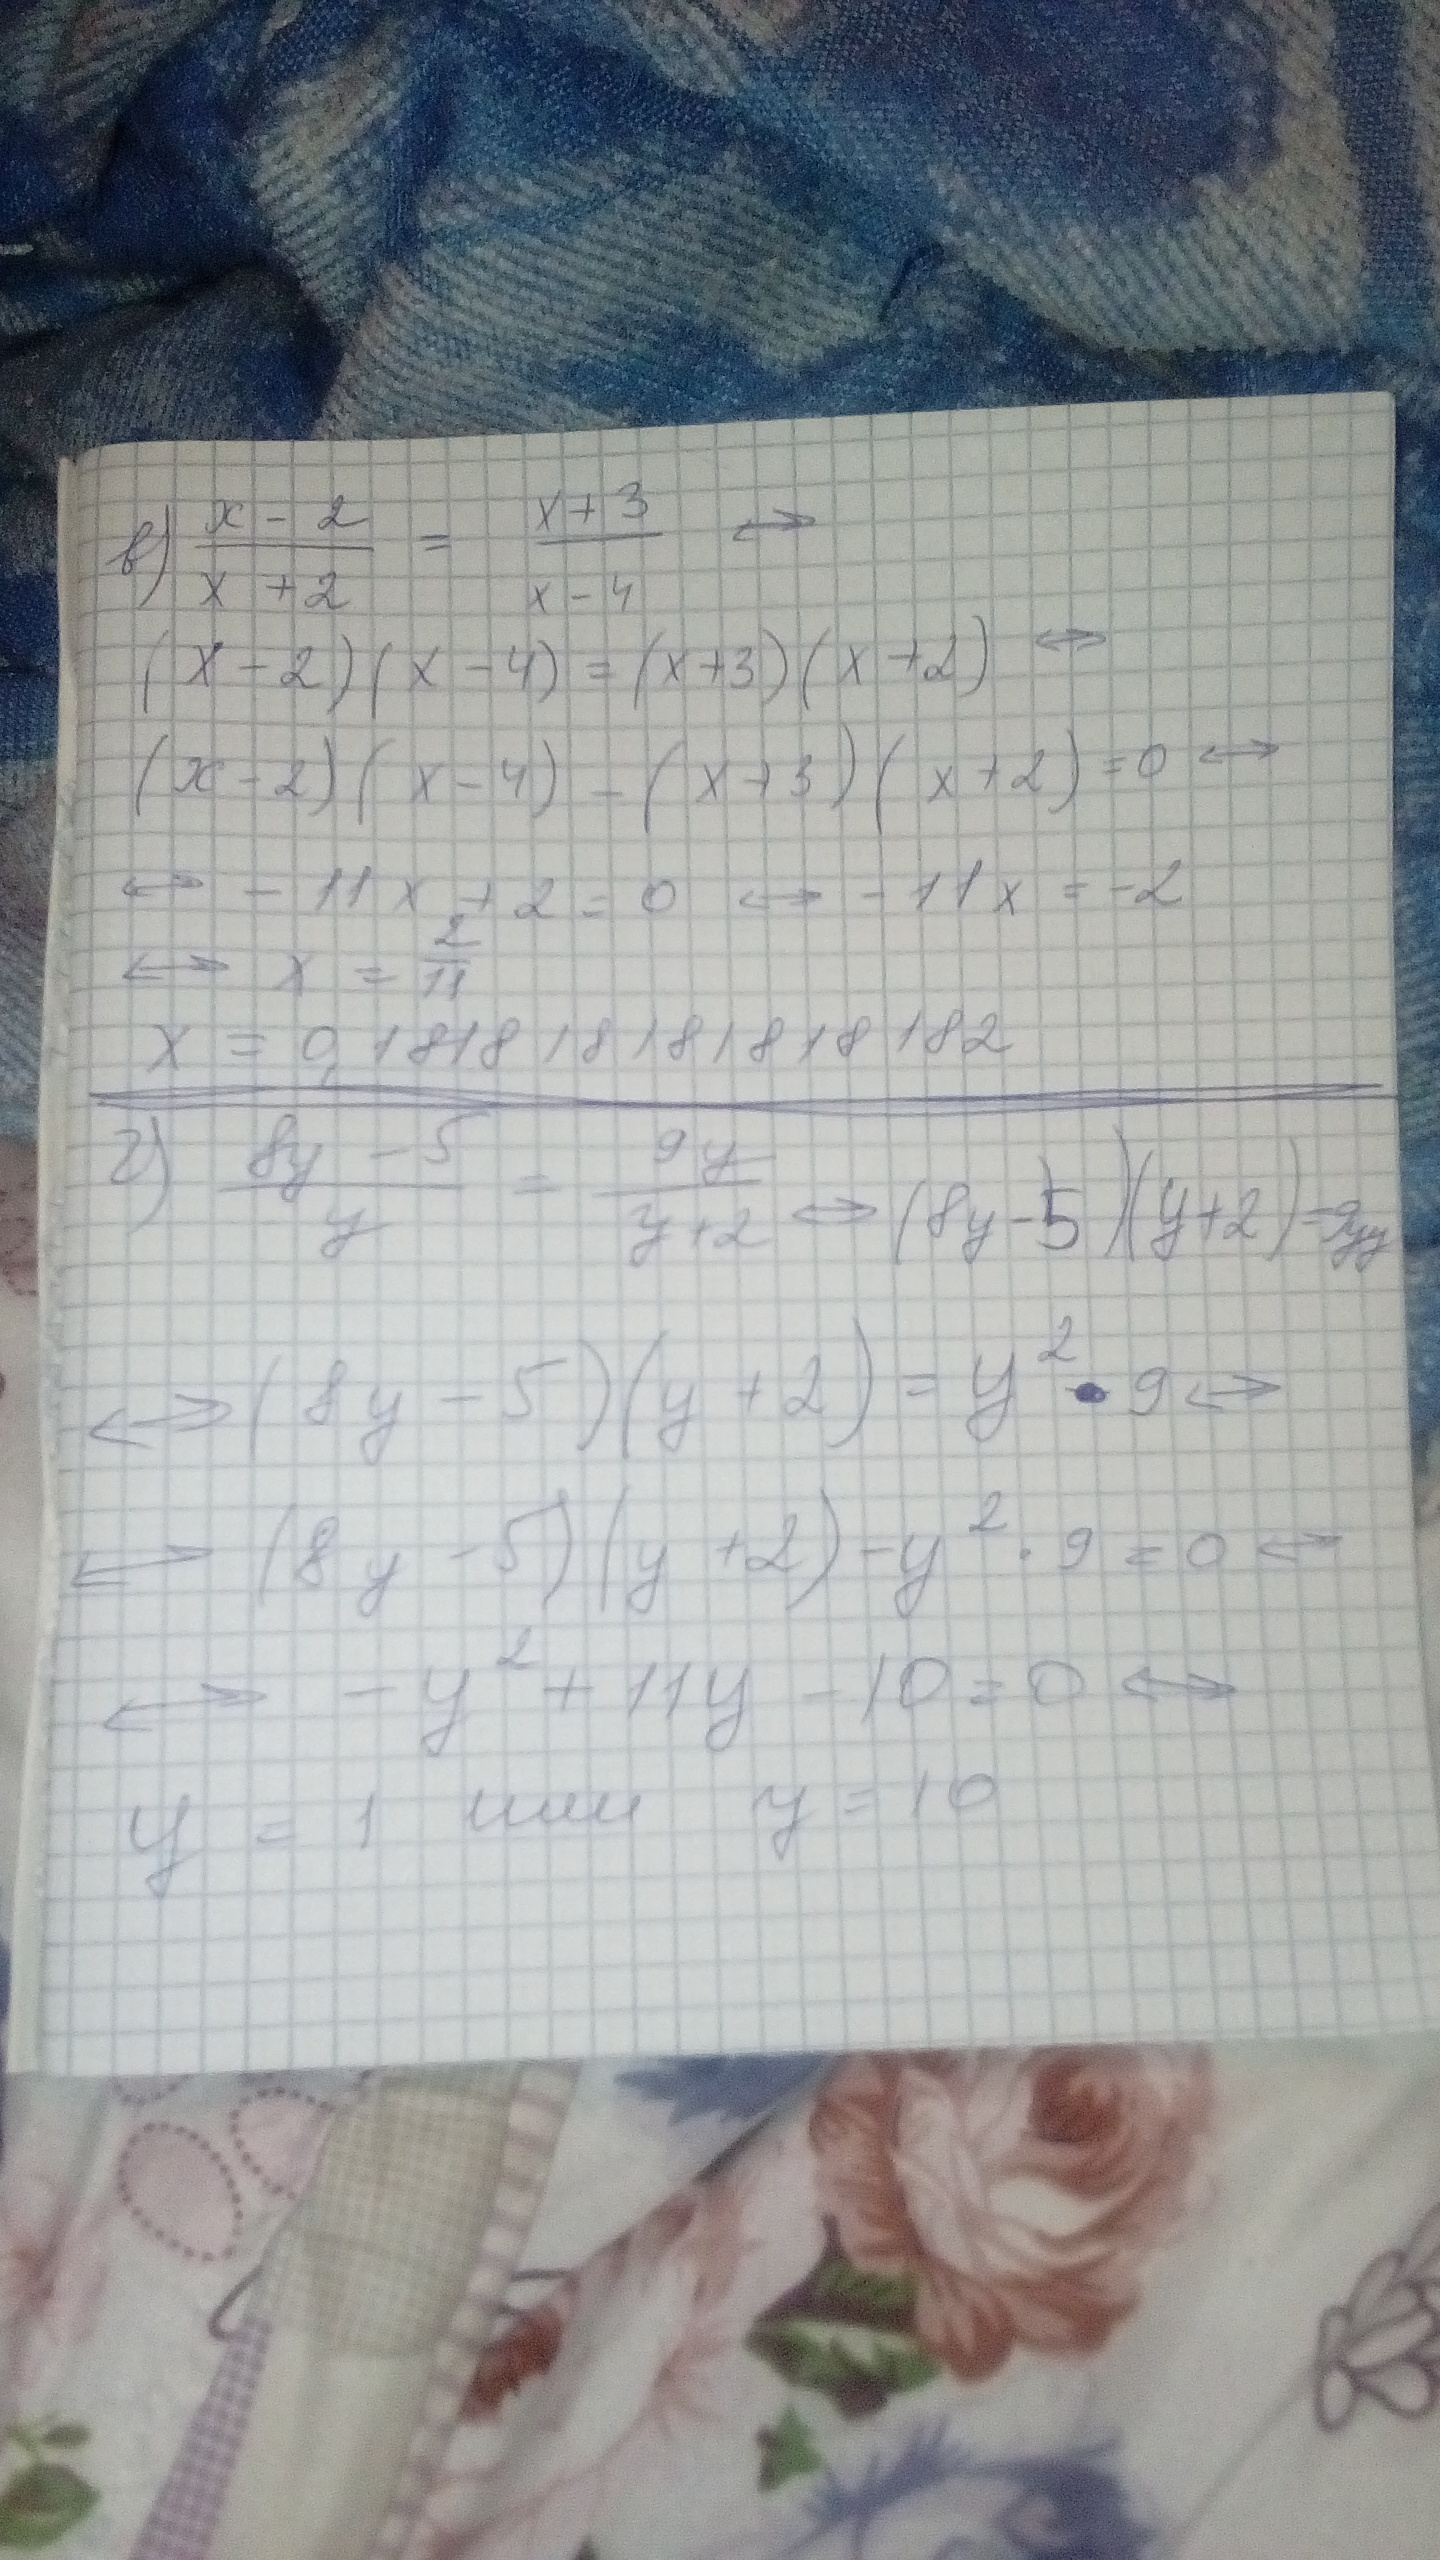 в) x - 2 / x + 2 = x + 3 / x - 4 ↔
(x - 2)(x - 4) = (x+3)(x+2) ↔
(x - 2)(x - 4) - (x+3)(x+2) = 0 ↔
↔ - 11x + 2 = 0 ↔ - 11x = -2
↔ x = 2/11
x = 0,18181818181818182
г) 8y - 5 / y = 9y / y+2 ↔ (8y - 5)(y+2) = 9yy
↔ (8y - 5)(y + 2) = y² • 9 ↔
↔ (8y - 5)(y + 2) - y² · 9 = 0 ↔
↔ - y² + 11y - 10 = 0 ↔
y = 1 или y = 10